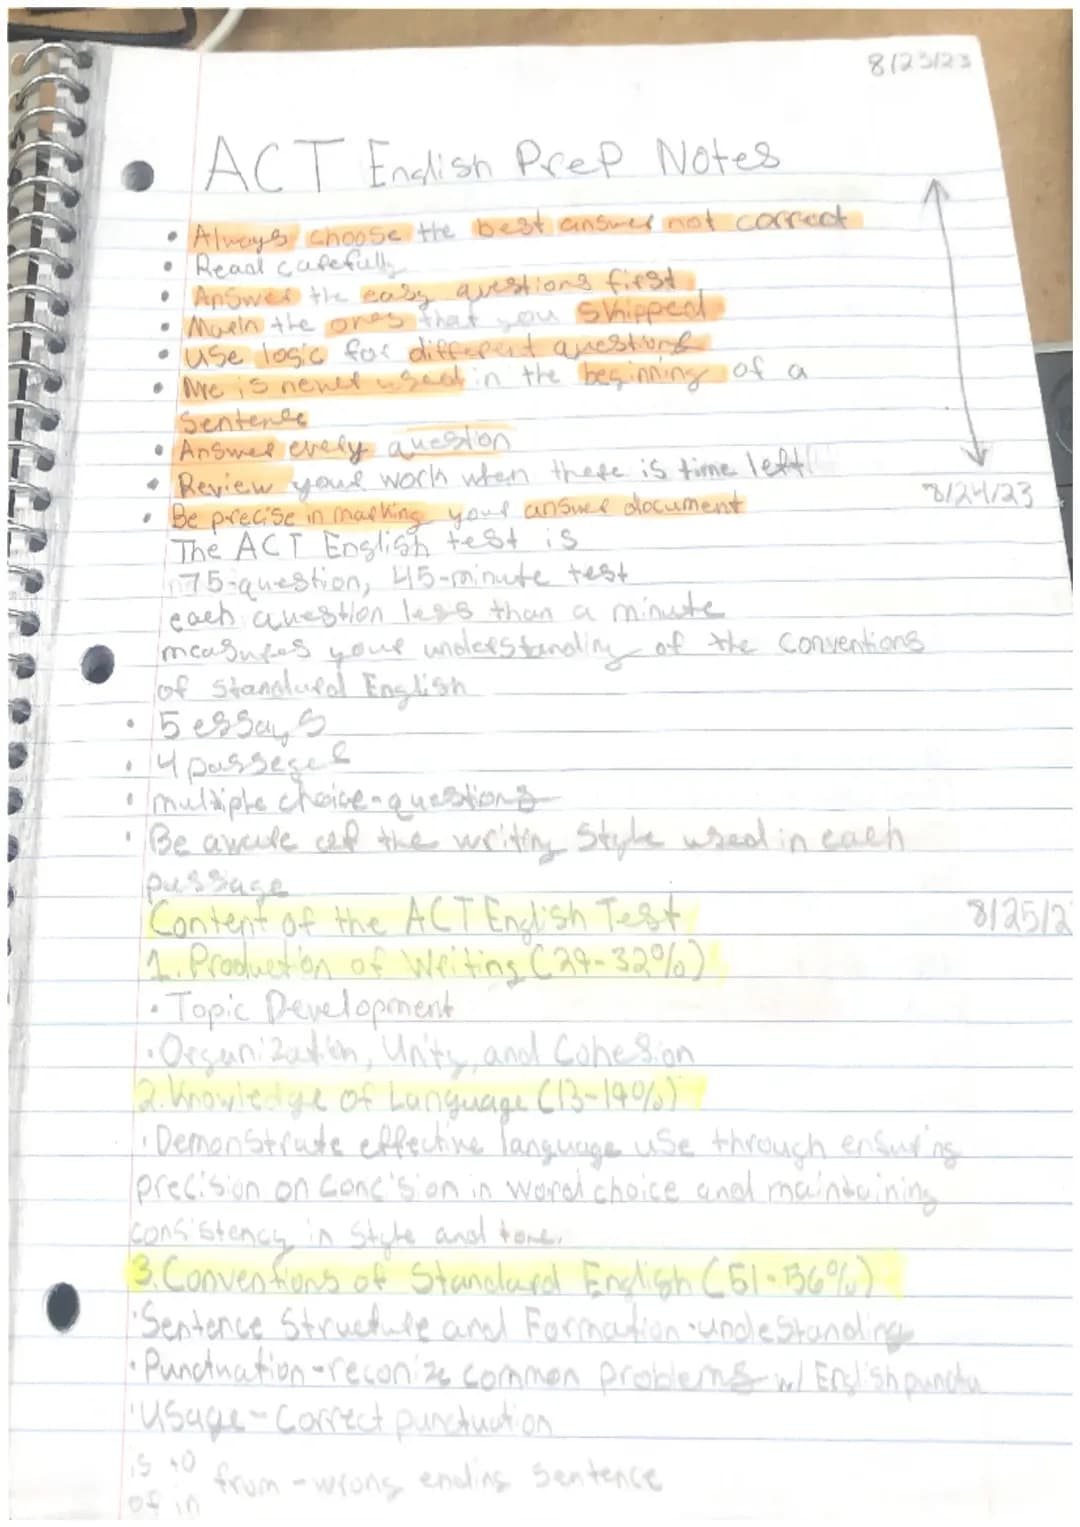 8/23/23
ACT English PreP Notes
• Always choose the best answer not correct
• Read carefully
• Answer the easy questions first
• the ones that you skipped
• use logic for different questions
• Me is never used in the beginning of a
Sentence
• Answer every question
• Review your work when there is time left
8/24/23
• Be precise in marking your answer document
The ACT English test is
75-question, 45-minute test
each question less than a minute
measures your understanding of the Conventions
of Standard English
• 5 essays
• 4 passeges
• multiple choice-questions
• Be aware of the writing Style used in each
passage
Content of the ACT English Test
8/25/2
1. Production of Writing (29-32%)
• Topic Development
• Organization, Unity, and Cohesion
2. Knowledge of Language (13-19%)
• Demonstrate effective language use through ensuring
precision on concision in word choice and maintaining
consistency in Style and tone.
3. Conventions of Standard English (51-56%)
• Sentence Structure and Formation - undestanding
• Punctuation - reconize common problems w/ English punctu
• Usage - Correct punctuation
is to
from - wrong ending sentence
of in